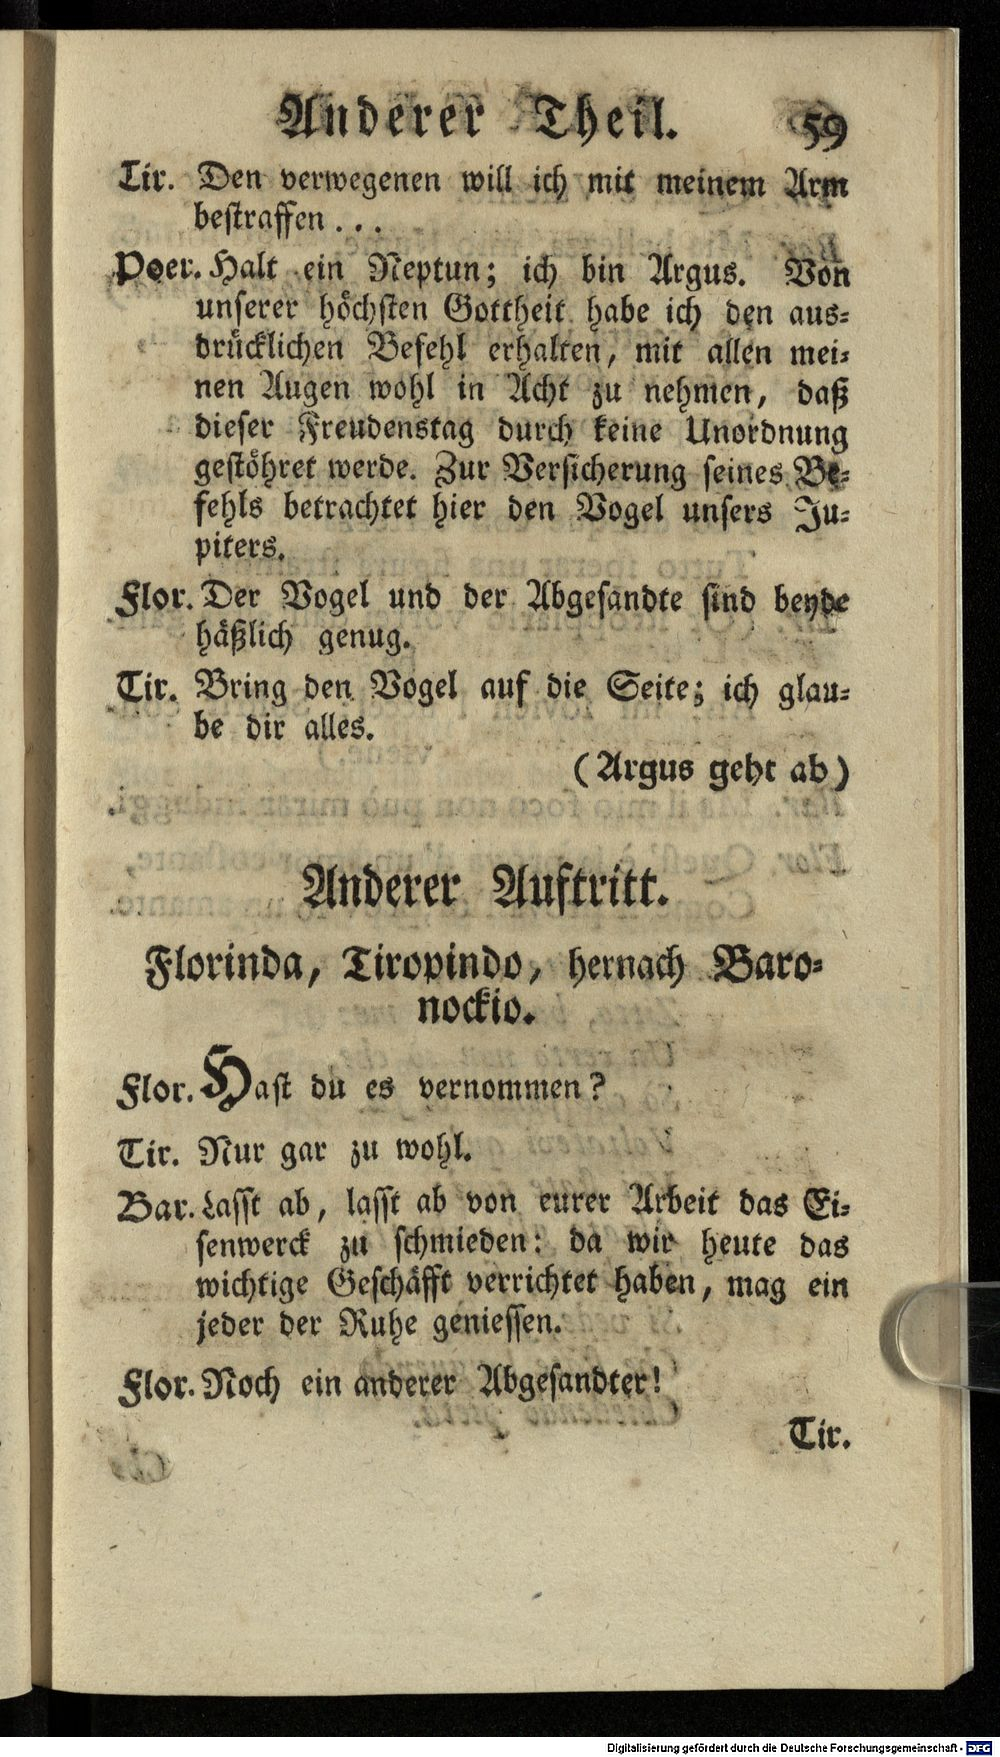 Anderer Theil. 59
Tir. Den verwegenen will ich mit meinem Arm
bestraffen . . .
Poer. Halt ein Neptun; ich bin Argus. Von
unserer höchsten Gottheit habe ich den aus-
drücklichen Befehl erhalten, mit allen mei-
nen Augen wohl in Acht zu nehmen, daß
dieser Freudenstag durch keine Unordnung
gestöhret werde. Zur Versicherung seines Be-
fehls betrachtet hier den Vogel unsers Ju-
piters.
Flor. Der Vogel und der Abgesandte sind beyde
häßlich genug.
Tir. Bring den Vogel auf die Seite; ich glau-
be dir alles.
(Argus geht ab)
Anderer Auftritt.
Florinda, Tiropindo, hernach Baro-
nockio.
Flor. Hast du es vernommen?
Tir. Nur gar zu wohl.
Bar. Lasst ab, lasst ab von eurer Arbeit das Ei-
senwerck zu schmieden: da wir heute das
wichtige Geschäfft verrichtet haben, mag ein
jeder der Ruhe geniessen.
Flor. Noch ein anderer Abgesandter!
Tir.
Digitalisierung gefördert durch die Deutsche Forschungsgemeinschaft - DFG